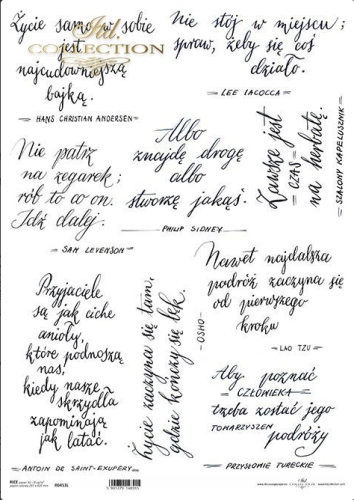 Życie samo w sobie
jest
najcudowniejszą
bajką.
HANS CHRISTIAN ANDERSEN
ITD.
COLLECTION
Nie stój w miejscu;
spraw, żeby się coś
działo.
LEE IACOCCA
Nie patrz
na zegarek;
rób to co on.
Idź dalej.
SAM LEVENSON
Albo
znajdę drogę
albo
stworzę jakąś.
PHILIP SIDNEY
Zawsze jest
CZAS
na herbatę.
SZALONY KAPELUSZNIK
Przyjaciele
są jak ciche
anioły,
które podnoszą
nas,
kiedy nasze
skrzydła
zapominają
jak latać.
ANTOIN DE SAINT-EXUPERY
Życie zaczyna się tam,
gdzie kończy się lęk.
OSHO
Nawet najdalsza
podróż zaczyna się
od pierwszego
kroku
LAO TZU
Aby poznać
CZŁOWIEKA
trzeba zostać jego
TOWARZYSZEM
podróży
PRZYSŁOWIE TURECKIE
RICE